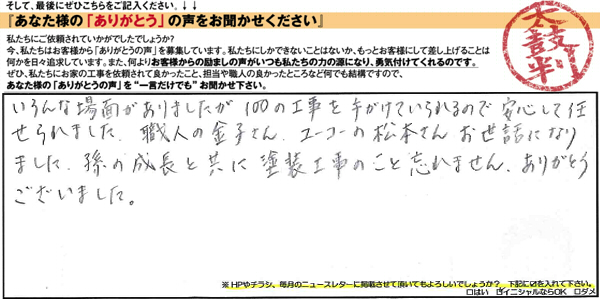 そして、最後にぜひこちらをご記入ください。↓↓
『あなた様の「ありがとう」の声をお聞かせください』
太鼓判
私たちにご依頼されていかがでしたでしょうか?
今、私たちはお客様から「ありがとうの声」を募集しています。私たちにしかできないことはないか、もっとお客様にして差し上げることは
何かを日々追求しています。また、何よりお客様からの励ましの声がいつも私たちの力の源になり、勇気付けてくれるのです。
ぜひ、私たちにお家の工事を依頼されて良かったこと、担当や職人の良かったところなど何でも結構ですので、
あなた様の「ありがとうの声」を“一言だけでも”お聞かせ下さい。
いろんな場面がありましたが100の工事を手がけていられるので安心して任
せられました。職人の金子さん、ユーコーの松本さんお世話になり
ました。孫の成長と共に塗装工事のこと忘れません。ありがとう
ございました。
※HPやチラシ、毎月のニュースレターに掲載させて頂いてもよろしいでしょうか?　下記に☑を入れて下さい。
□はい ☑イニシャルならOK □ダメ